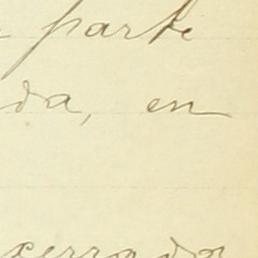 parte
da, en
cerrada